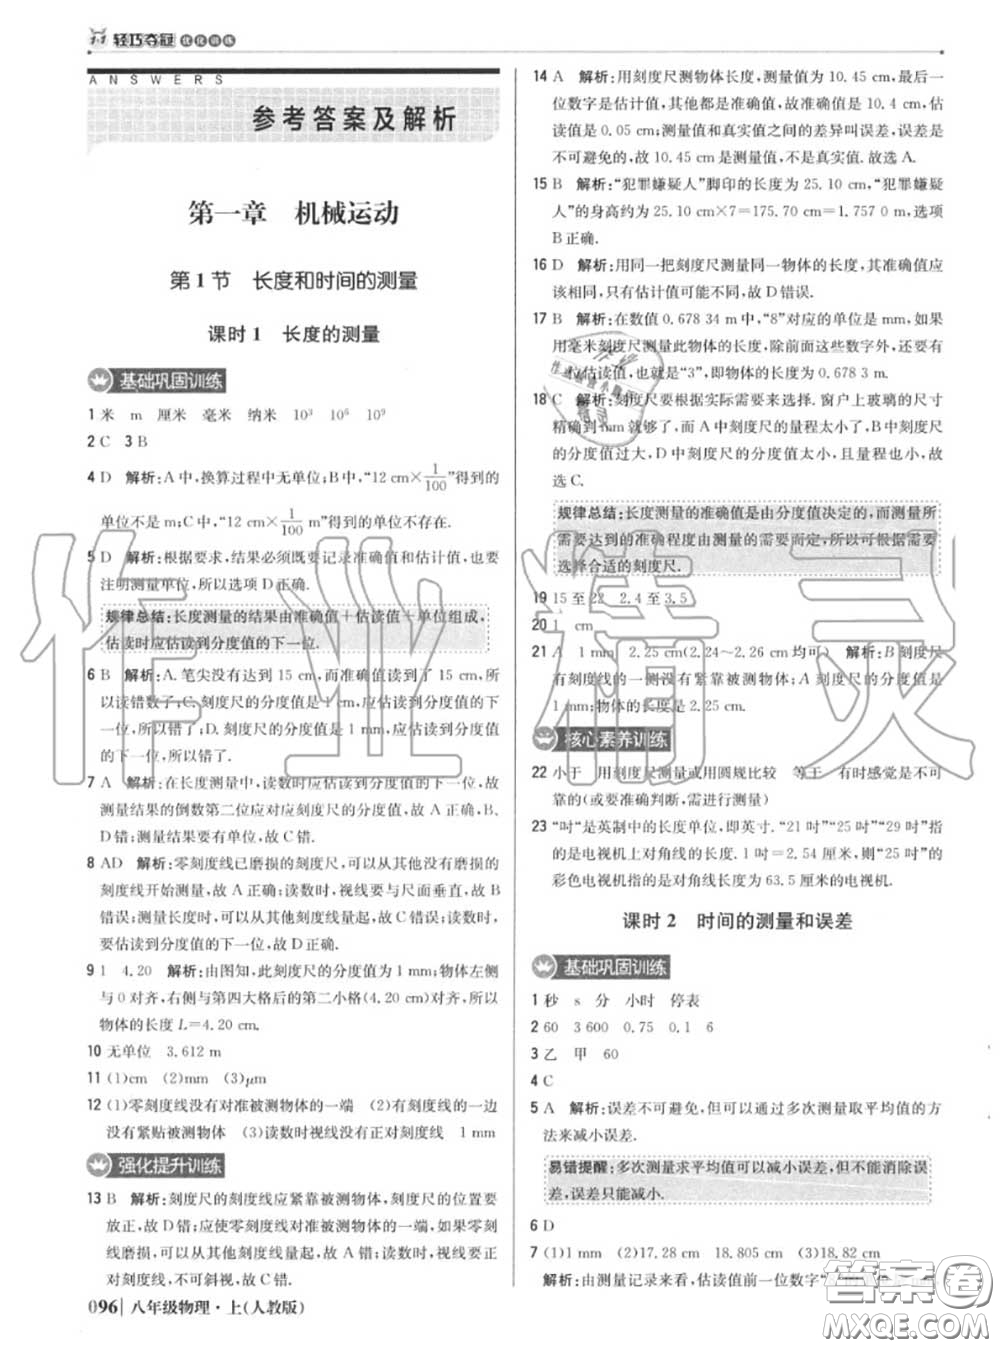 轻巧夺冠 优化训练
ANSWERS
参考答案及解析
第一章 机械运动
第1节 长度和时间的测量
课时1 长度的测量
基础巩固训练
1 米 m 厘米 毫米 纳米 10³ 10⁶ 10⁹
2 C 3 B
4 D 解析:A中,换算过程中无单位;B中,“12 cm×1/100”得到的
单位不是 m;C中,“12 cm×1/100 m”得到的单位不存在.
5 D 解析:根据要求,结果必须既要记录准确值和估计值,也要
注明测量单位,所以选项 D正确.
规律总结:长度测量的结果由准确值+估读值+单位组成,
估读时应估读到分度值的下一位.
6 B 解析:A.笔尖没有达到 15 cm,而准确值读到了 15 cm,所
以读错数了;C.刻度尺的分度值是 1 cm,应估读到分度值的下
一位,所以错了;D.刻度尺的分度值是 1 mm,应估读到分度值
的下一位,所以错了.
7 A 解析:在长度测量中,读数时应估读到分度值的下一位,故
测量结果的倒数第二位应对应刻度尺的分度值,故 A正确,B、
D错;测量结果要有单位,故 C错.
8 AD 解析:零刻度线已磨损的刻度尺,可以从其他没有磨损的
刻度线开始测量,故 A正确;读数时,视线要与尺面垂直,故 B
错误;测量长度时,可以从其他刻度线量起,故 C错误;读数时,
要估读到分度值的下一位,故 D正确.
9 1 4.20 解析:由图知,此刻度尺的分度值为 1 mm;物体左侧
与 0 对齐,右侧与第四大格后的第二小格(4.20 cm)对齐,所以
物体的长度 L=4.20 cm.
10 无单位 3.612 m
11 (1)cm (2)mm (3)μm
12 (1)零刻度线没有对准被测物体的一端 (2)有刻度线的一边
没有紧贴被测物体 (3)读数时视线没有正对刻度线 1 mm
强化提升训练
13 B 解析:刻度尺的刻度线应紧靠被测物体,刻度尺的位置要
放正,故 D错;应使零刻度线对准被测物体的一端,如果零刻
线磨损,可以从其他刻度线量起,故 A错;读数时,视线要正对
刻度线,不可斜视,故 C错.
096 八年级物理·上(人教版)
14 A 解析:用刻度尺测物体长度,测量值为 10.45 cm,最后一
位数字是估计值,其他都是准确值,故准确值是 10.4 cm,估
读值是 0.05 cm;测量值和真实值之间的差异叫误差,误差是
不可避免的,故 10.45 cm 是测量值,不是真实值.故选 A.
15 B 解析:“犯罪嫌疑人”脚印的长度为 25.10 cm,“犯罪嫌疑
人”的身高约为 25.10 cm×7=175.70 cm=1.757 0 m,选项
B正确.
16 D 解析:用同一把刻度尺测量同一物体的长度,其准确值应
该相同,只有估计值可能不同,故 D错误.
17 B 解析:在数值 0.678 34 m 中,“8”对应的单位是 mm,如果
用毫米刻度尺测量此物体的长度,除前面这些数字外,还要有
一位估读值,也就是“3”,即物体的长度为 0.678 3 m.
18 C 解析:刻度尺要根据实际需要来选择.窗户上玻璃的尺寸
精确到 mm 就可以了,而 A中刻度尺的量程太小了,B中刻度尺
的分度值过大,D中刻度尺的分度值太小,且量程也太小了,故
选 C.
规律总结:长度测量的准确值是由分度值决定的,而测量所
需要达到的准确程度由测量的需要而定,所以可根据需要
选择合适的刻度尺.
19 15 至 22 2.4 至 3.5
20 1 cm
21 A 1 mm 2.25 cm(2.24~2.26 cm 均可) 解析:B刻度尺
有刻度线的一侧没有紧靠被测物体;A刻度尺的分度值是
1 mm;物体的长度是 2.25 cm.
核心素养训练
22 小于 用刻度尺测量或用圆规比较 等于 有时感觉是不可
靠的(或要准确判断,需进行测量)
23 “吋”是英制中的长度单位,即英寸.“21 吋”“25 吋”“29 吋”指
的是电视机上对角线的长度.1 吋=2.54 厘米,则“25 吋”的
彩色电视机指的是对角线长度为 63.5 厘米的电视机.
课时2 时间的测量和误差
基础巩固训练
1 秒 s 分 小时 停表
2 60 3 600 0.75 0.1 6
3 乙 甲 60
4 C
5 A 解析:误差不可避免,但可以通过多次测量取平均值的方
法来减小误差.
易错提醒:多次测量求平均值可以减小误差,但不能消除误
差,误差只能减小.
6 D
7 (1)1 mm (2)17.28 cm 18.805 cm (3)18.82 cm
解析:由测量记录来看,估读值前一位数字
作业精灵
答案圈
MXQE.COM